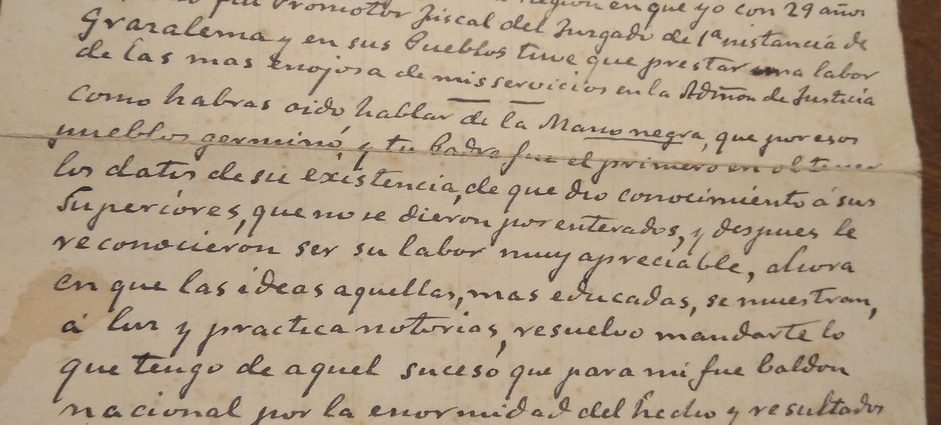 fui Promotor fiscal del Juzgado de 1ª instancia de
region en que yo con 29 años
Grazalema y en sus Pueblos tuve que prestar una labor
de las mas enojosa de mis servicios en la Admon de Justicia
Como habras oido hablar de la Mano negra, que por esos
pueblos germinó, y tu Padre fue el primero en obtener
los datos de su existencia, de que dio conocimiento á sus
Superiores, que no se dieron por enterados, y despues le
reconocieron ser su labor muy apreciable, ahora
en que las ideas aquellas, mas educadas, se muestran,
á luz y practica notorias, resuelvo mandarte lo
que tengo de aquel suceso que para mi fue baldon
nacional por la enormidad del hecho y resultados